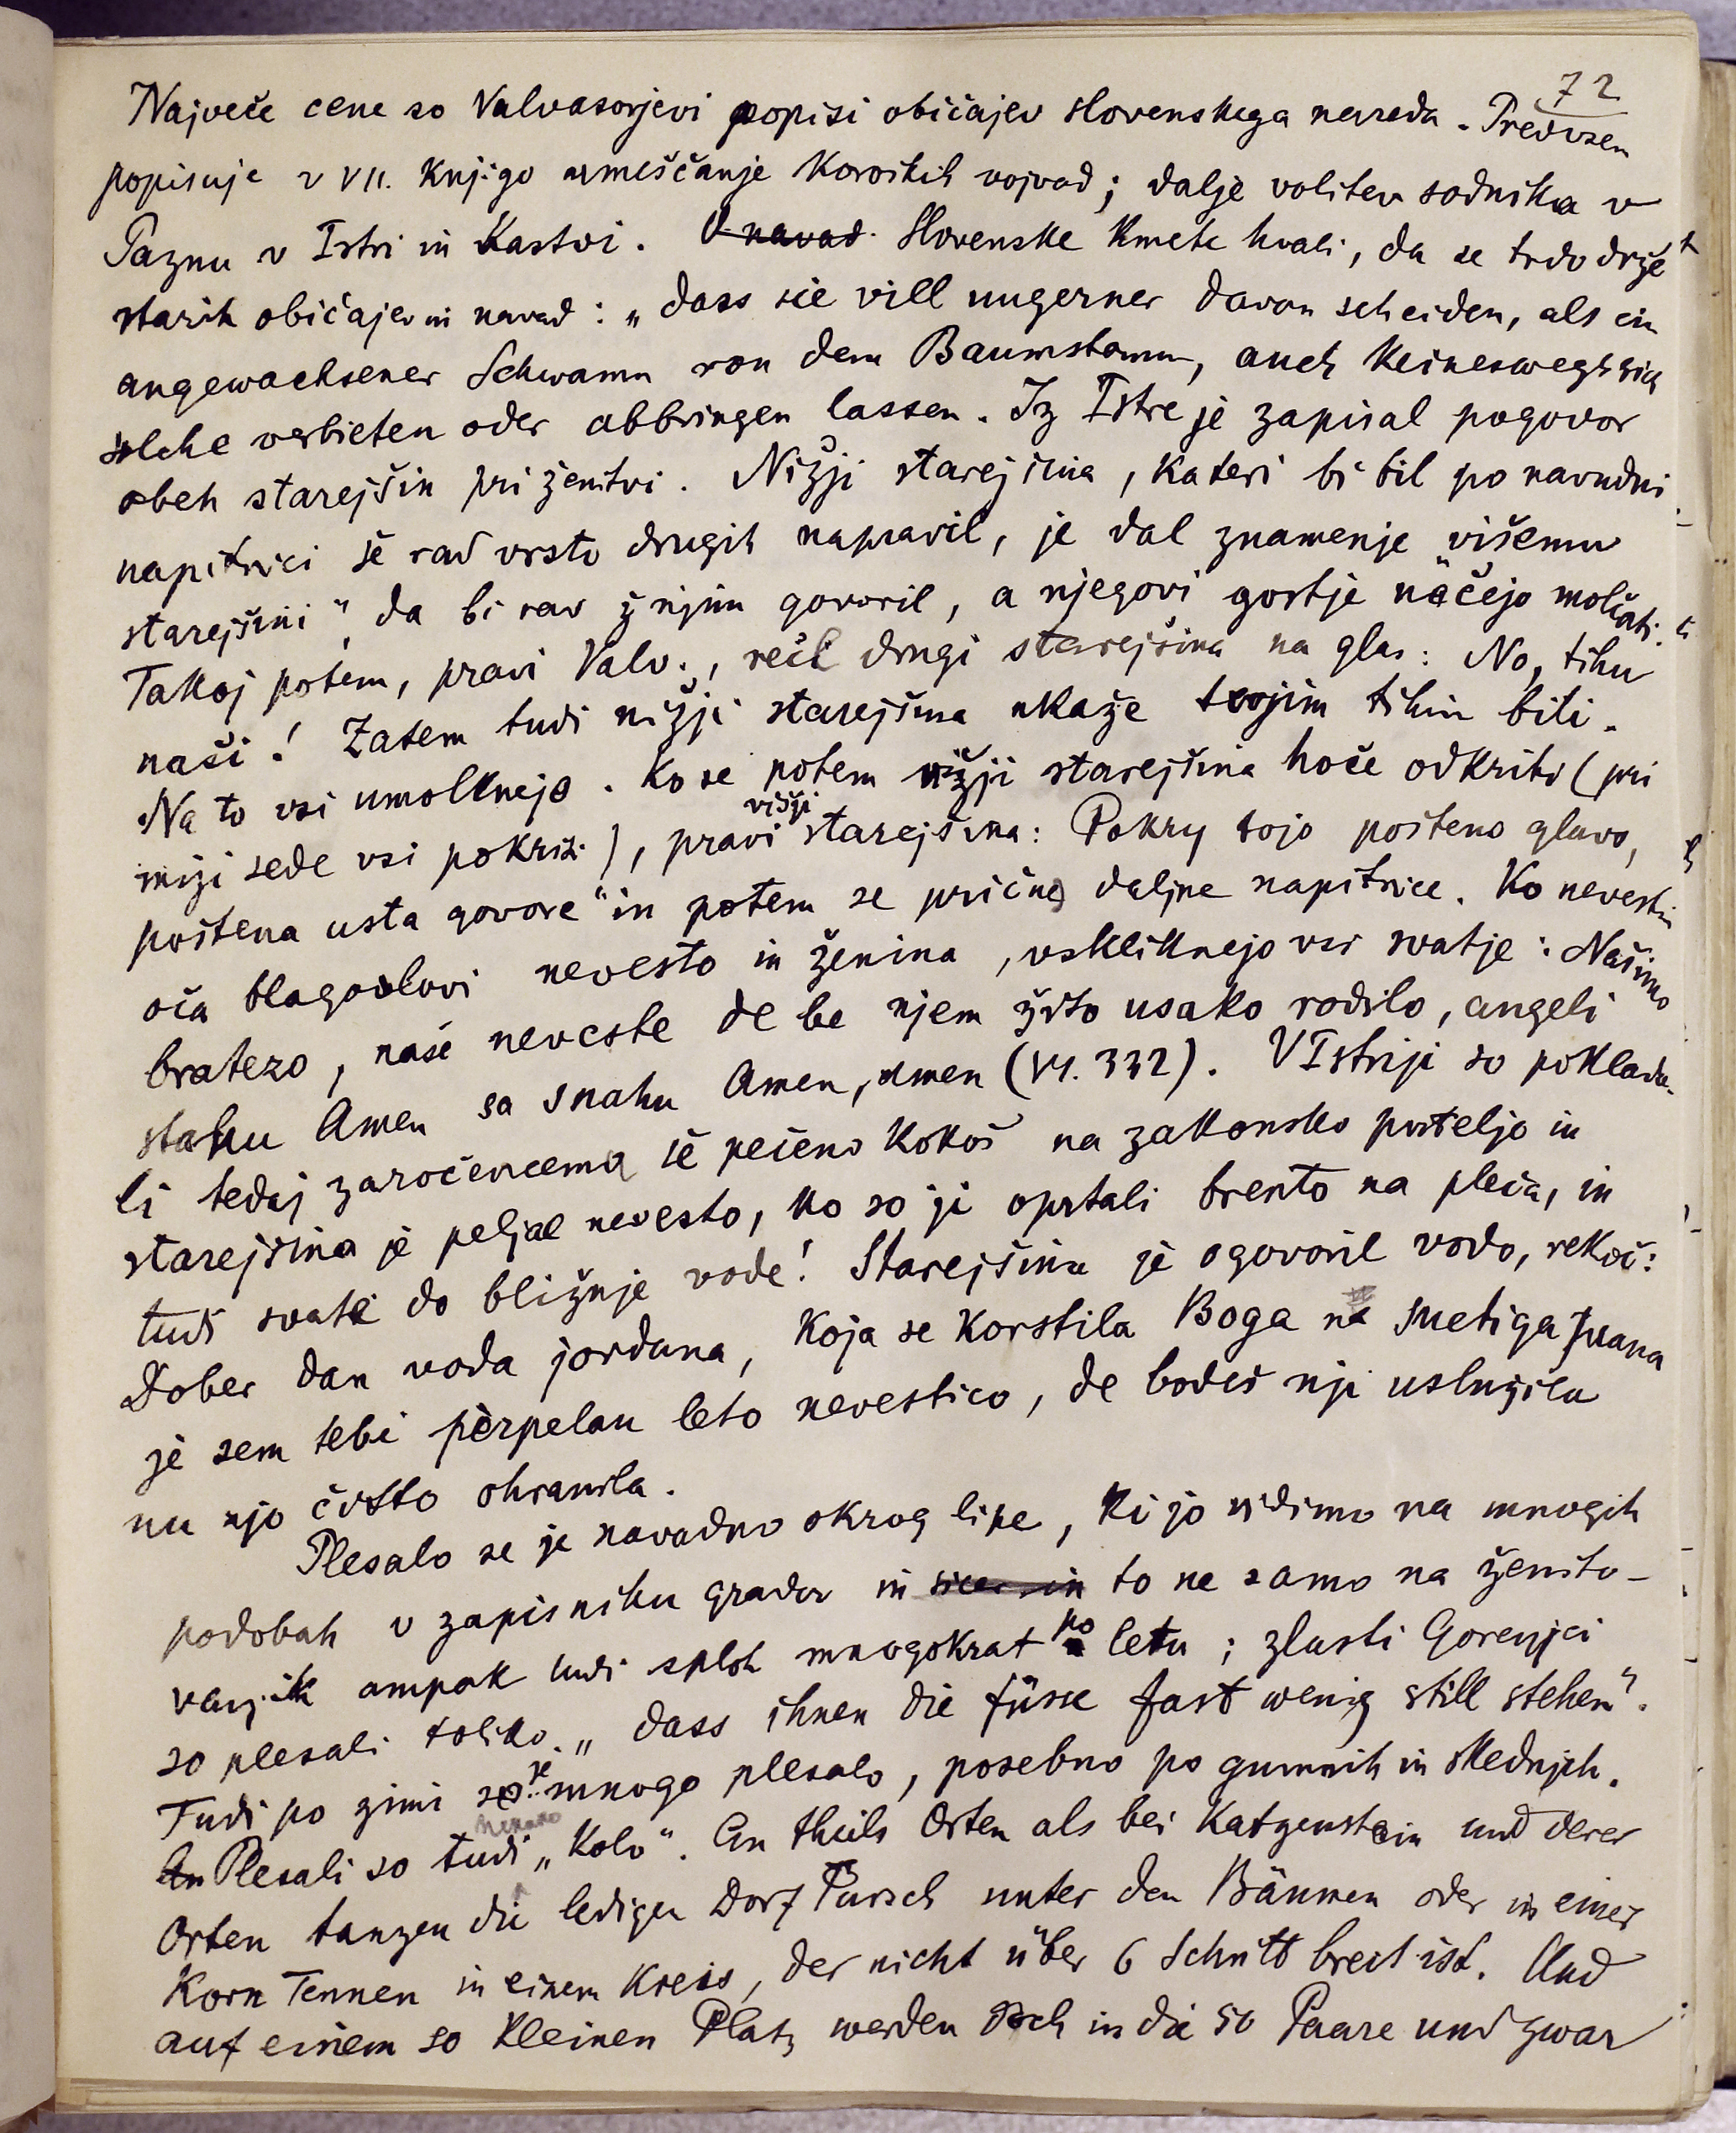 72
Največe cene so Valvasorjevi popisi običajev slovenskega naroda. Predvsem
popisuje v VII. knjigo umeščanje koroških vojvod; dalje volitev sodnika v
Paznu v Istri in Kastvi. O navad. Slovenske kmete hvali, da se trdo drže
starih običajev in navad: „dass sie vill ungerner davon scheiden, als ein
angewachsener Schwamm von dem Baumstamm, auch keineswegs sich
solche verbieten oder abbringen lassen. Iz Istre je zapisal pogovor
obeh starejšin pri ženitvi. Nižji starejšina, kateri bi bil po navadni
napitnici še rad vrsto drugih napravil, je dal znamenje „višemu
starejšini“, da bi rad ž njim govoril, a njegovi gostje nečejo molčati.
Takoj potem, pravi Valv., reče drugi starejšina na glas: No, tihu
naši! Zatem tudi nižji starejšina ukaže svojim tihim biti.
Na to vsi umolknejo. Ko se potem nižji starejšina hoče odkriti (pri
mizi sede vsi pokriti), pravi višji starejšina: Pokry tojo pošteno glavo,
poštena usta govore“ in potem se prične daljne napitnice. Ko nevestin
oča blagoslovi nevesto in ženina, vskliknejo vsi svatje: Našimo
bratezo, naše neveste de be njem žito usako rodilo, angeli
stahu Amen sa snahu Amen, amen (VI. 332). V Istriji so poklada-
li tedaj zaročencema še pečeno kokoš na zakonsko posteljo in
starejšina je peljal nevesto, ko so ji oprtali brento na pleča, in
tudi svate do bližnje vode! Starejšina je ogovoril vodo, rekoč:
Dober dan voda jordana, koja se korstila Boga na Suetiga Juana
je sem tebi perpelau leto nevestico, de bodeš nji uslužila
nu njo čisto ohranila.
Plesalo se je navadno okrog lipe, ki jo vidimo na mnogih
podobah v zapisniku gradov in sicer in to ne samo na ženito-
vanjih ampak tudi sploh mnogokrat po letu; zlasti Gorenjci
so plesali toliko, „dass ihnen die füsse fast wenig still stehen“.
Tudi po zimi se je mnogo plesalo, posebno po gumnih in skednjih.
An Plesali so tudi nekako „Kolo“. An theils Orten als bei Katzenstein und derer
Orten tanzen die ledigen Dorf Pursch unter den Bäumen oder in einer
Korn Tennen in einem Kreis, der nicht über 6 Schritt breit ist. Und
auf einem so kleinen Platz werden sich in die 50 Paare und zwar